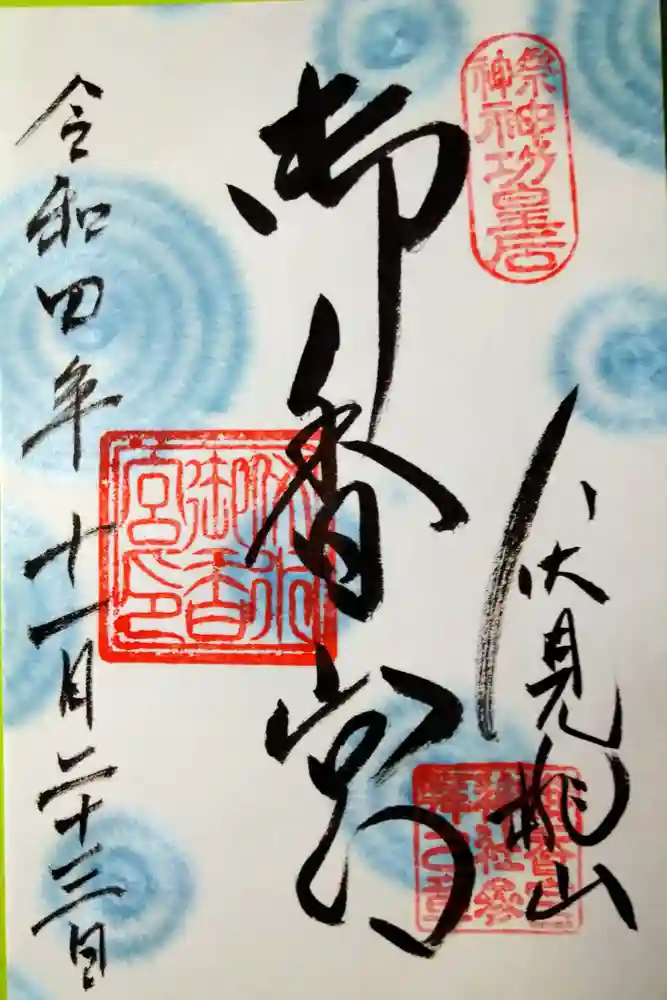 祭神
神功皇后
伏見桃山
御香宮
神社参
拝之章
御香宮
伏水
御香
宮之印
令和四年十一月二十三日